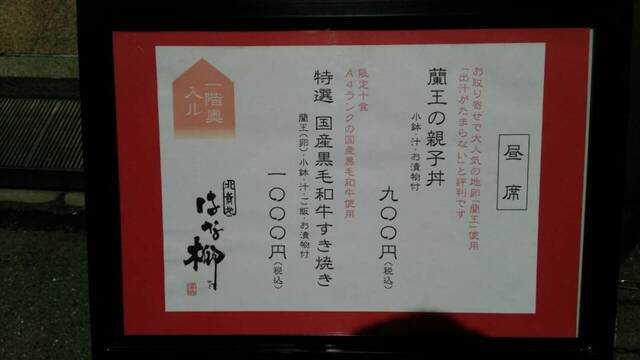 昼席
お取り寄せで大人気の地卵「蘭王」使用
「出汁がたまらない」と評判です
蘭王の親子丼
小鉢・汁・お漬物付
九〇〇円(税込)
限定十食
A4ランクの国産黒毛和牛使用
特選 国産黒毛和牛すき焼き
蘭王(卵)・小鉢・汁・ご飯・お漬物付
一〇〇〇円(税込)
一階奥
入ル
はな柳